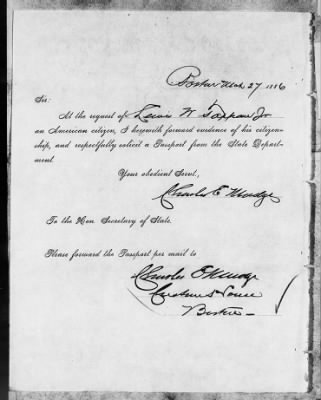 Boston Mch 27, 1886
Sir:
At the request of Lewis W Tappan Jr
an American citizen, I herewith forward evidence of his citizen-
ship, and respectfully solicit a Passport from the State Depart-
ment.
Your obedient Servt,
Charles E Mudge
To the Hon Secretary of State.
Please forward the Passport per mail to
Charles E Mudge
Custom House
Boston